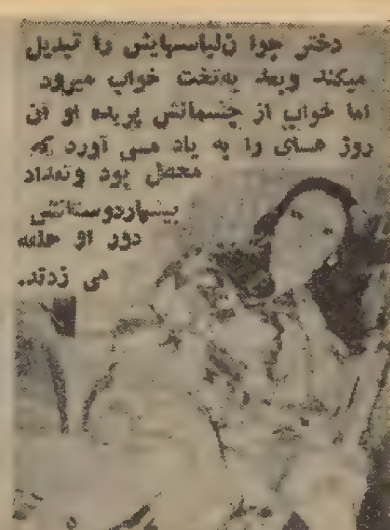 دختر جوا نلباسهایش را تبدیل
میکند وبعد به‌تخت خواب میرود
اما خواب از چشمانش پریده او آن
روز های را به یاد می آورد که
محصل بود وتعداد
بیشماردوستانش
دور او حلقه
می زدند.